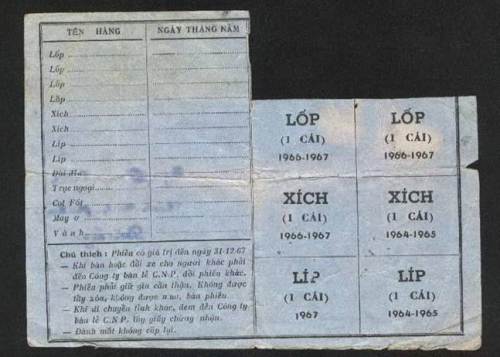 TÊN HÀNG NGÀY THÁNG NĂM
Lốp
Lốp
Lốp
Lốp
Xích
Xích
Líp
Líp
Đùi đĩa
Trục ngoại
Cọt Fốt
May ơ
Vành
Chú thích : Phiếu có giá trị đến ngày 31-12-67
— Khi bán hoặc đổi xe cho người khác phải
đến Công ty bán lẻ C.N.P. đổi phiếu khác.
— Phiếu phải giữ gìn cẩn thận. Không được
tẩy xóa, không được mua, bán phiếu
— Khi di chuyển tỉnh khác, đem đến Công ty
bán lẻ C.N.P. lấy giấy chứng nhận.
— Đánh mất không cấp lại.
LỐP
(1 CÁI)
1966-1967
LỐP
(1 CÁI)
1966-1967
XÍCH
(1 CÁI)
1966-1967
XÍCH
(1 CÁI)
1964-1965
LÍP
(1 CÁI)
1967
LÍP
(1 CÁI)
1964-1965